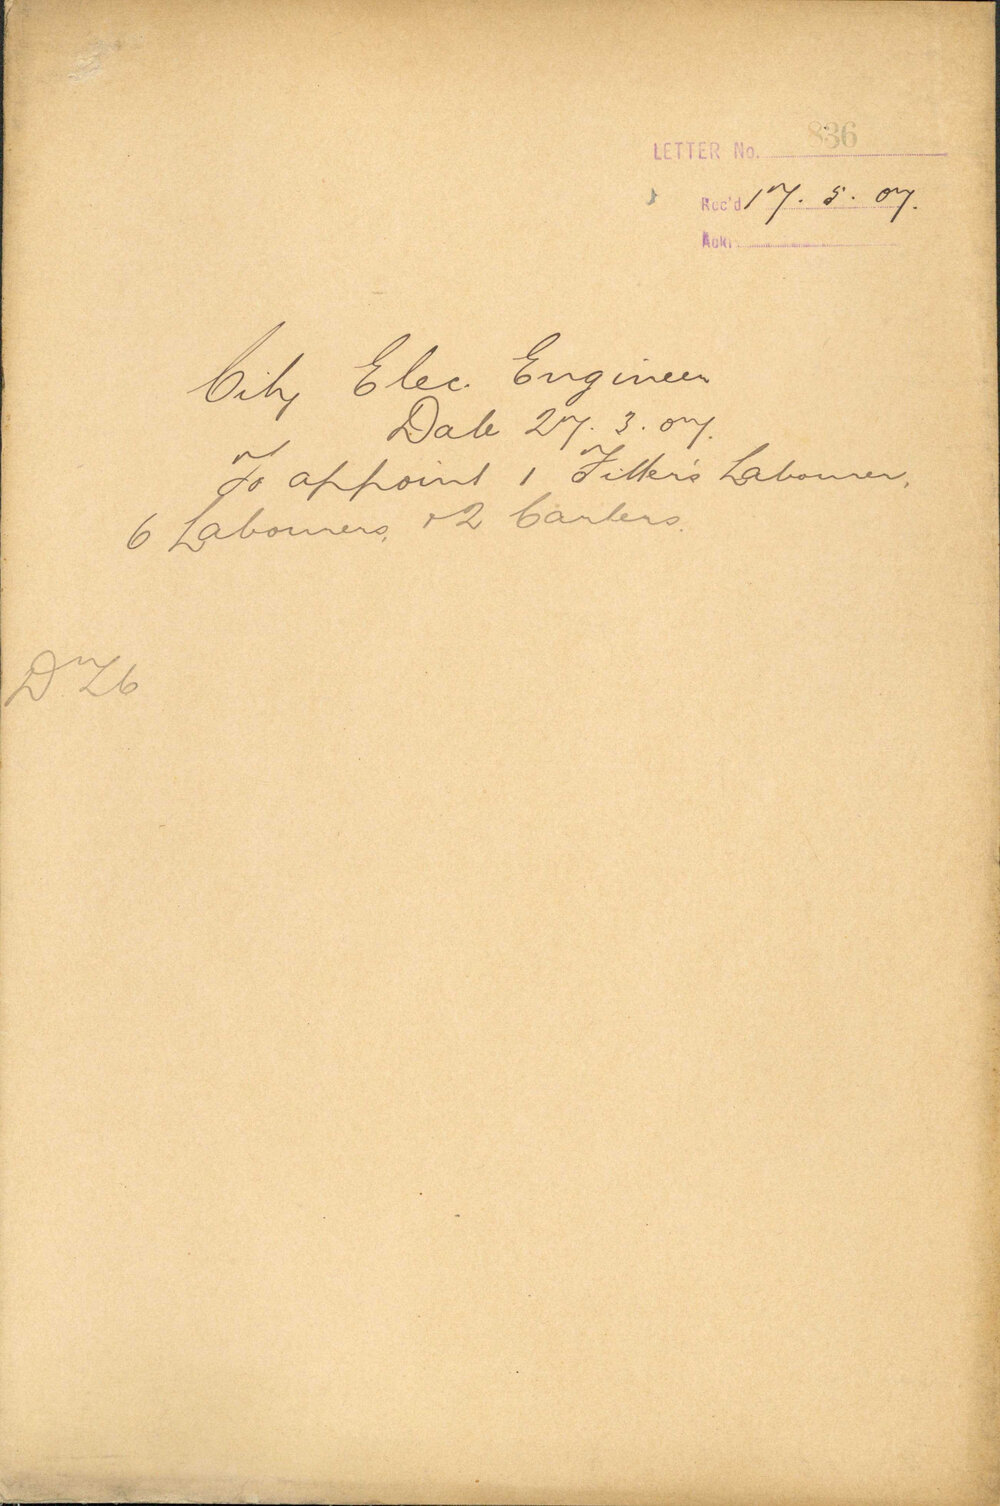 LETTER No. 836
Rec'd 17. 5. 07.
Ack.
City Elec. Engineer
Date 27. 3. 07.
To appoint 1 Fitter's Labourer,
6 Labourers, & 2 Carters.